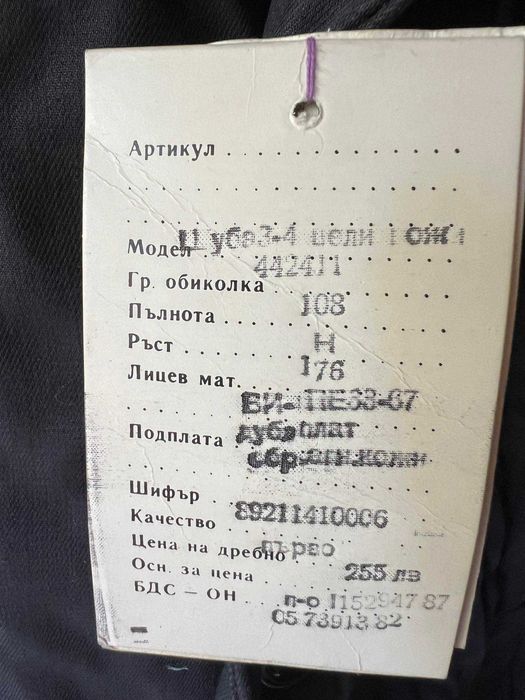 Артикул
Шуба 3-4 цели кожи
Модел 442411
Гр. обиколка 108
Пълнота Н
Ръст 176
Лицев мат. ВИ-ПЕ33-67
Подплата дубл плат
Шифър 89211410006
Качество първо
Цена на дребно 255 лв
Осн. за цена п-о 1152947 87
БДС – ОН 05 73913 82